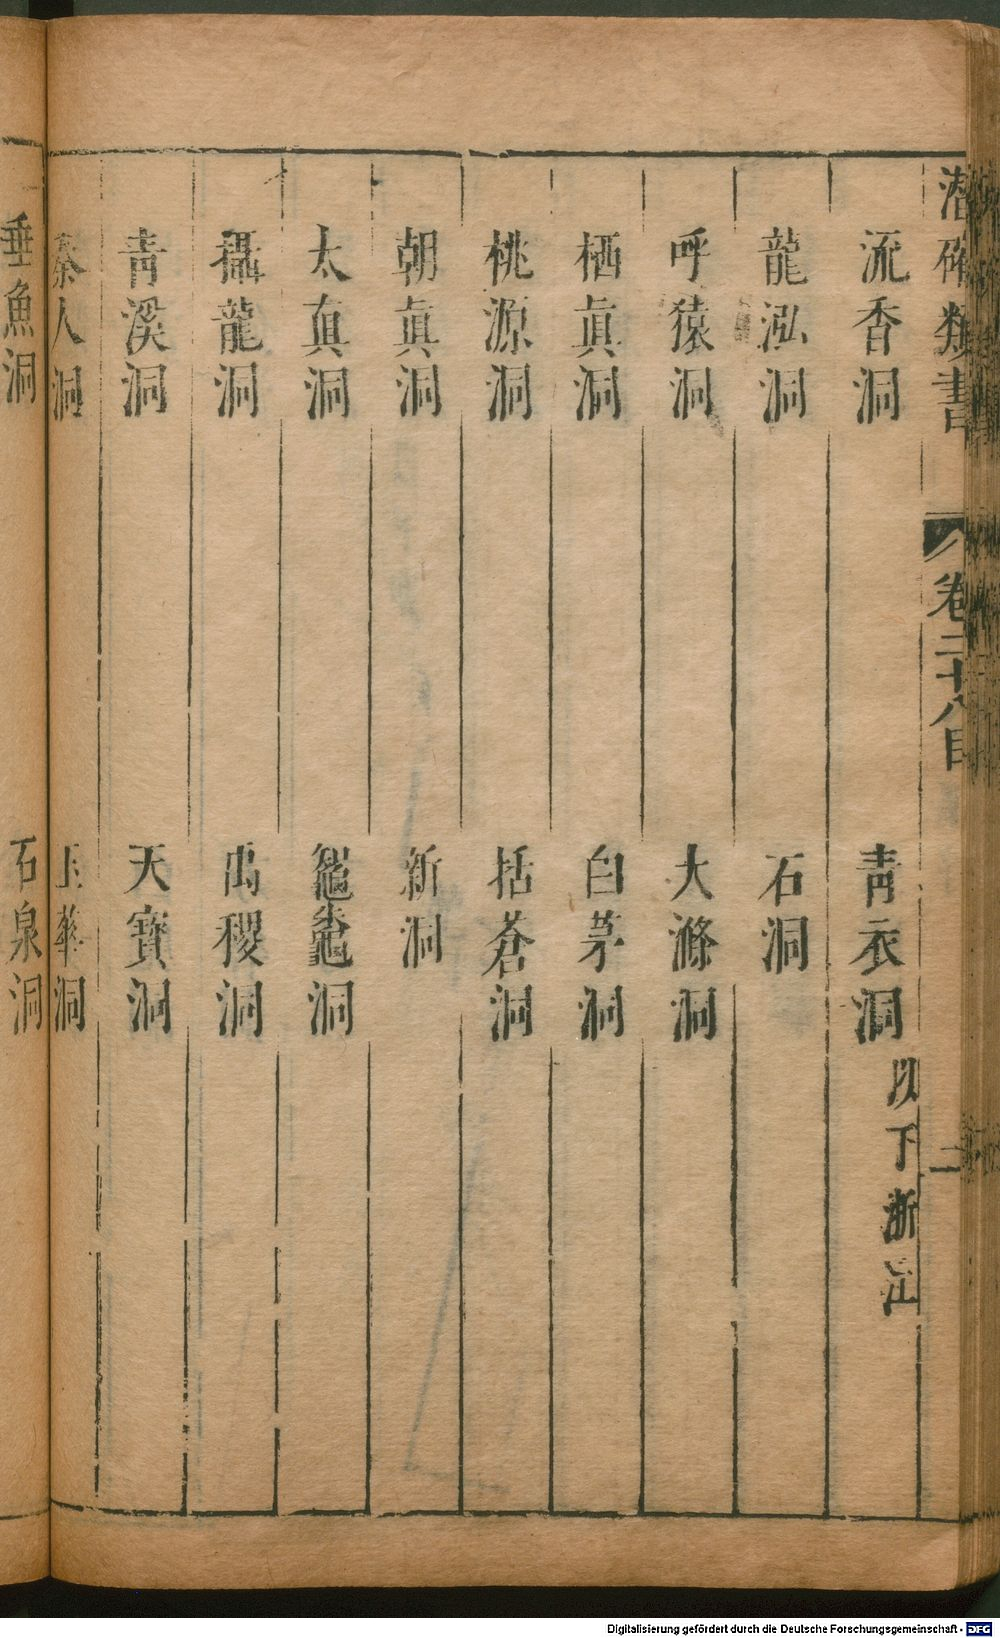 潛確類書 卷二十八目 二
流香洞 青衣洞 以下浙江
龍泓洞 石洞
呼猿洞 大滌洞
栖眞洞 白茅洞
桃源洞 括蒼洞
朝眞洞 新洞
太眞洞 黿鼉洞
攝龍洞 禹稷洞
青溪洞 天寶洞
秦人洞 玉華洞
垂魚洞 石泉洞
Digitalisierung gefördert durch die Deutsche Forschungsgemeinschaft - DFG